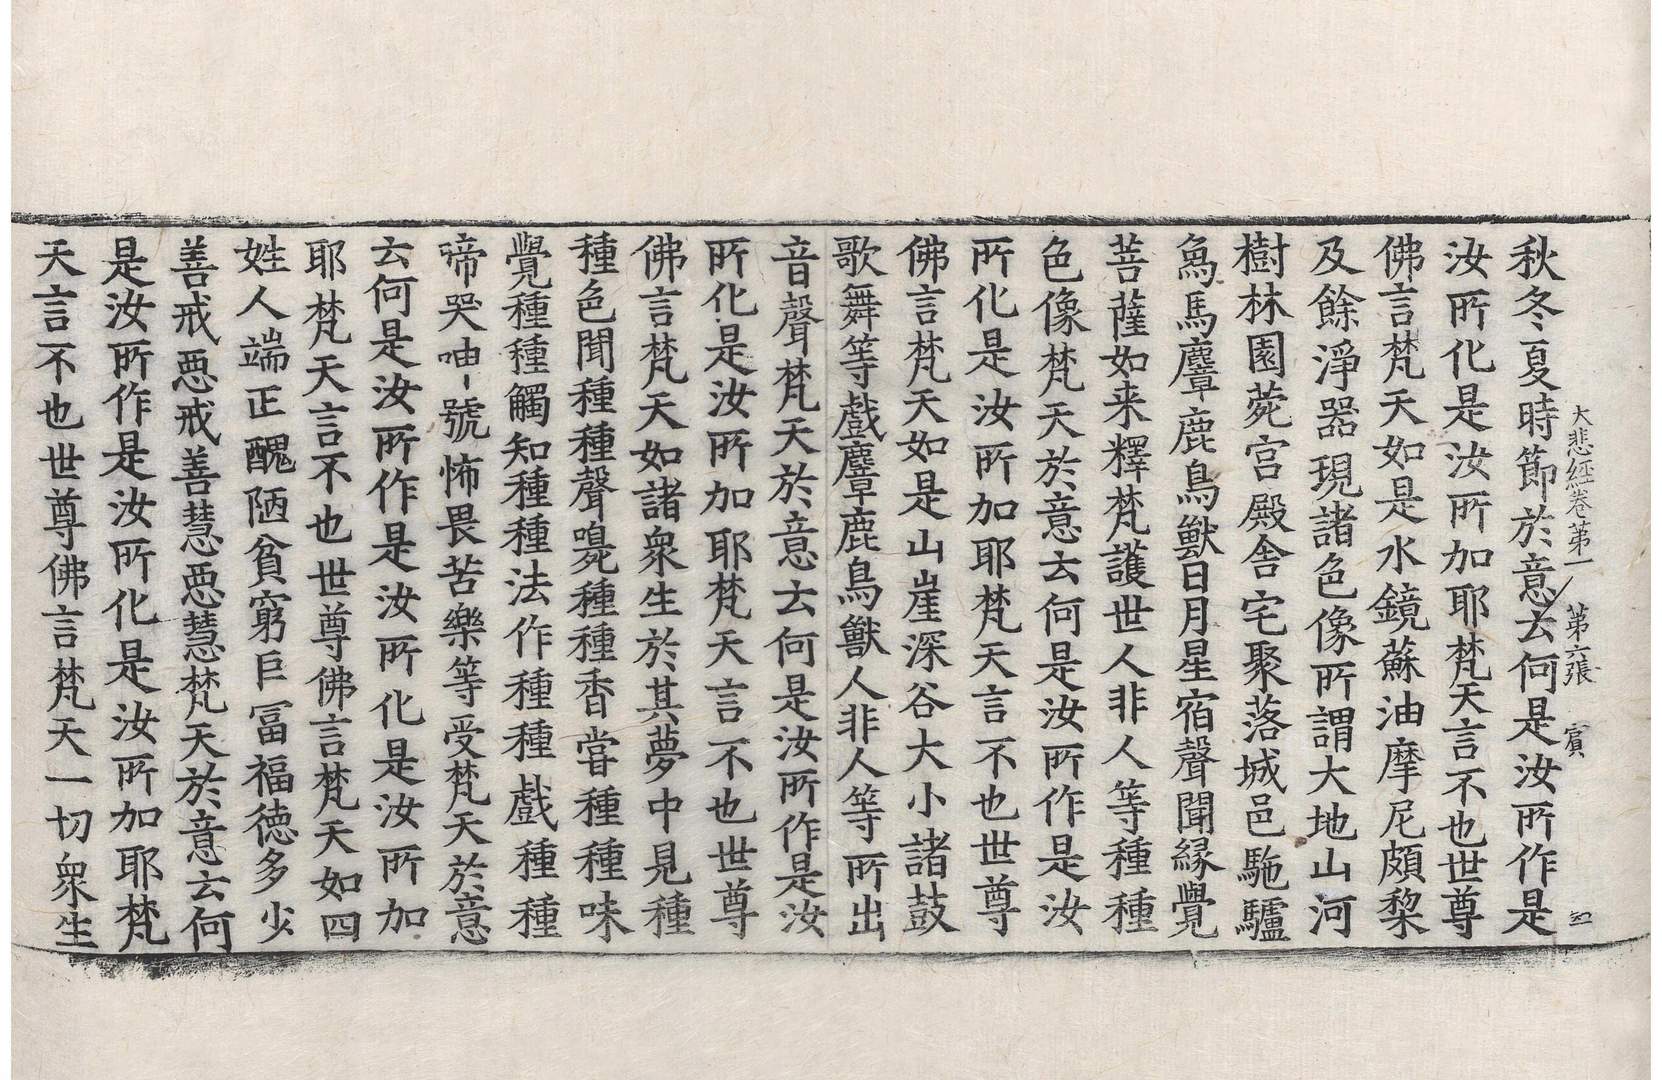 大悲經卷第一 第六張 賓
秋冬夏時節於意云何是汝所作是
汝所化是汝所加耶梵天言不也世尊
佛言梵天如是水鏡蘇油摩尼頗棃
及餘淨器現諸色像所謂大地山河
樹林園菀宮殿舍宅聚落城邑駞驢
烏馬麞鹿鳥獸日月星宿聲聞緣覺
菩薩如来釋梵護世人非人等種種
色像梵天於意云何是汝所作是汝
所化是汝所加耶梵天言不也世尊
佛言梵天如是山崖深谷大小諸鼓
歌舞等戲麞鹿鳥獸人非人等所出
音聲梵天於意云何是汝所作是汝
所化是汝所加耶梵天言不也世尊
佛言梵天如諸衆生於其夢中見種
種色聞種種聲嗅種種香甞種種味
覺種種觸知種種法作種種戲種種
啼哭呻號怖畏苦樂等受梵天於意
云何是汝所作是汝所化是汝所加
耶梵天言不也世尊佛言梵天如四
姓人端正醜陋貧窮巨冨福徳多少
善戒惡戒善慧惡慧梵天於意云何
是汝所作是汝所化是汝所加耶梵
天言不也世尊佛言梵天一切衆生